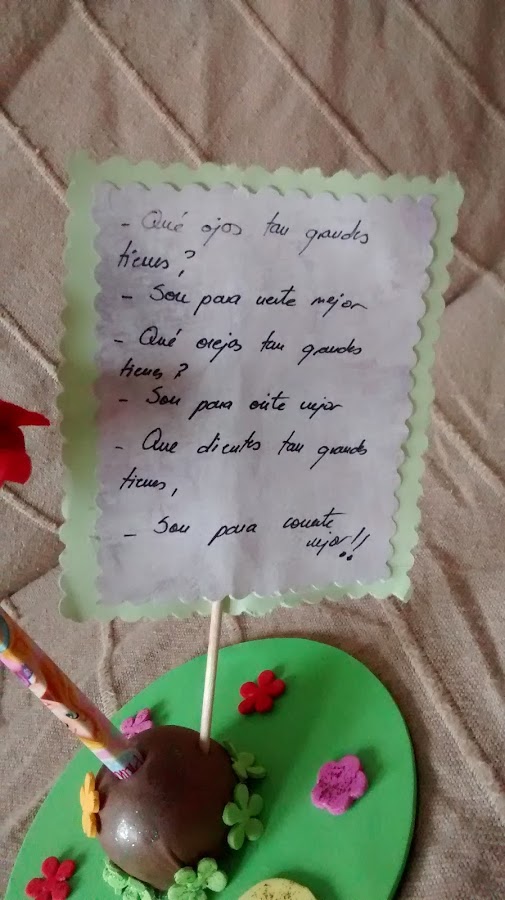 - Qué ojos tan grandes
tienes?
- Son para verte mejor
- Qué orejas tan grandes
tienes?
- Son para oirte mejor
- Que dientes tan grandes
tienes,
- Son para comerte
mejor!!